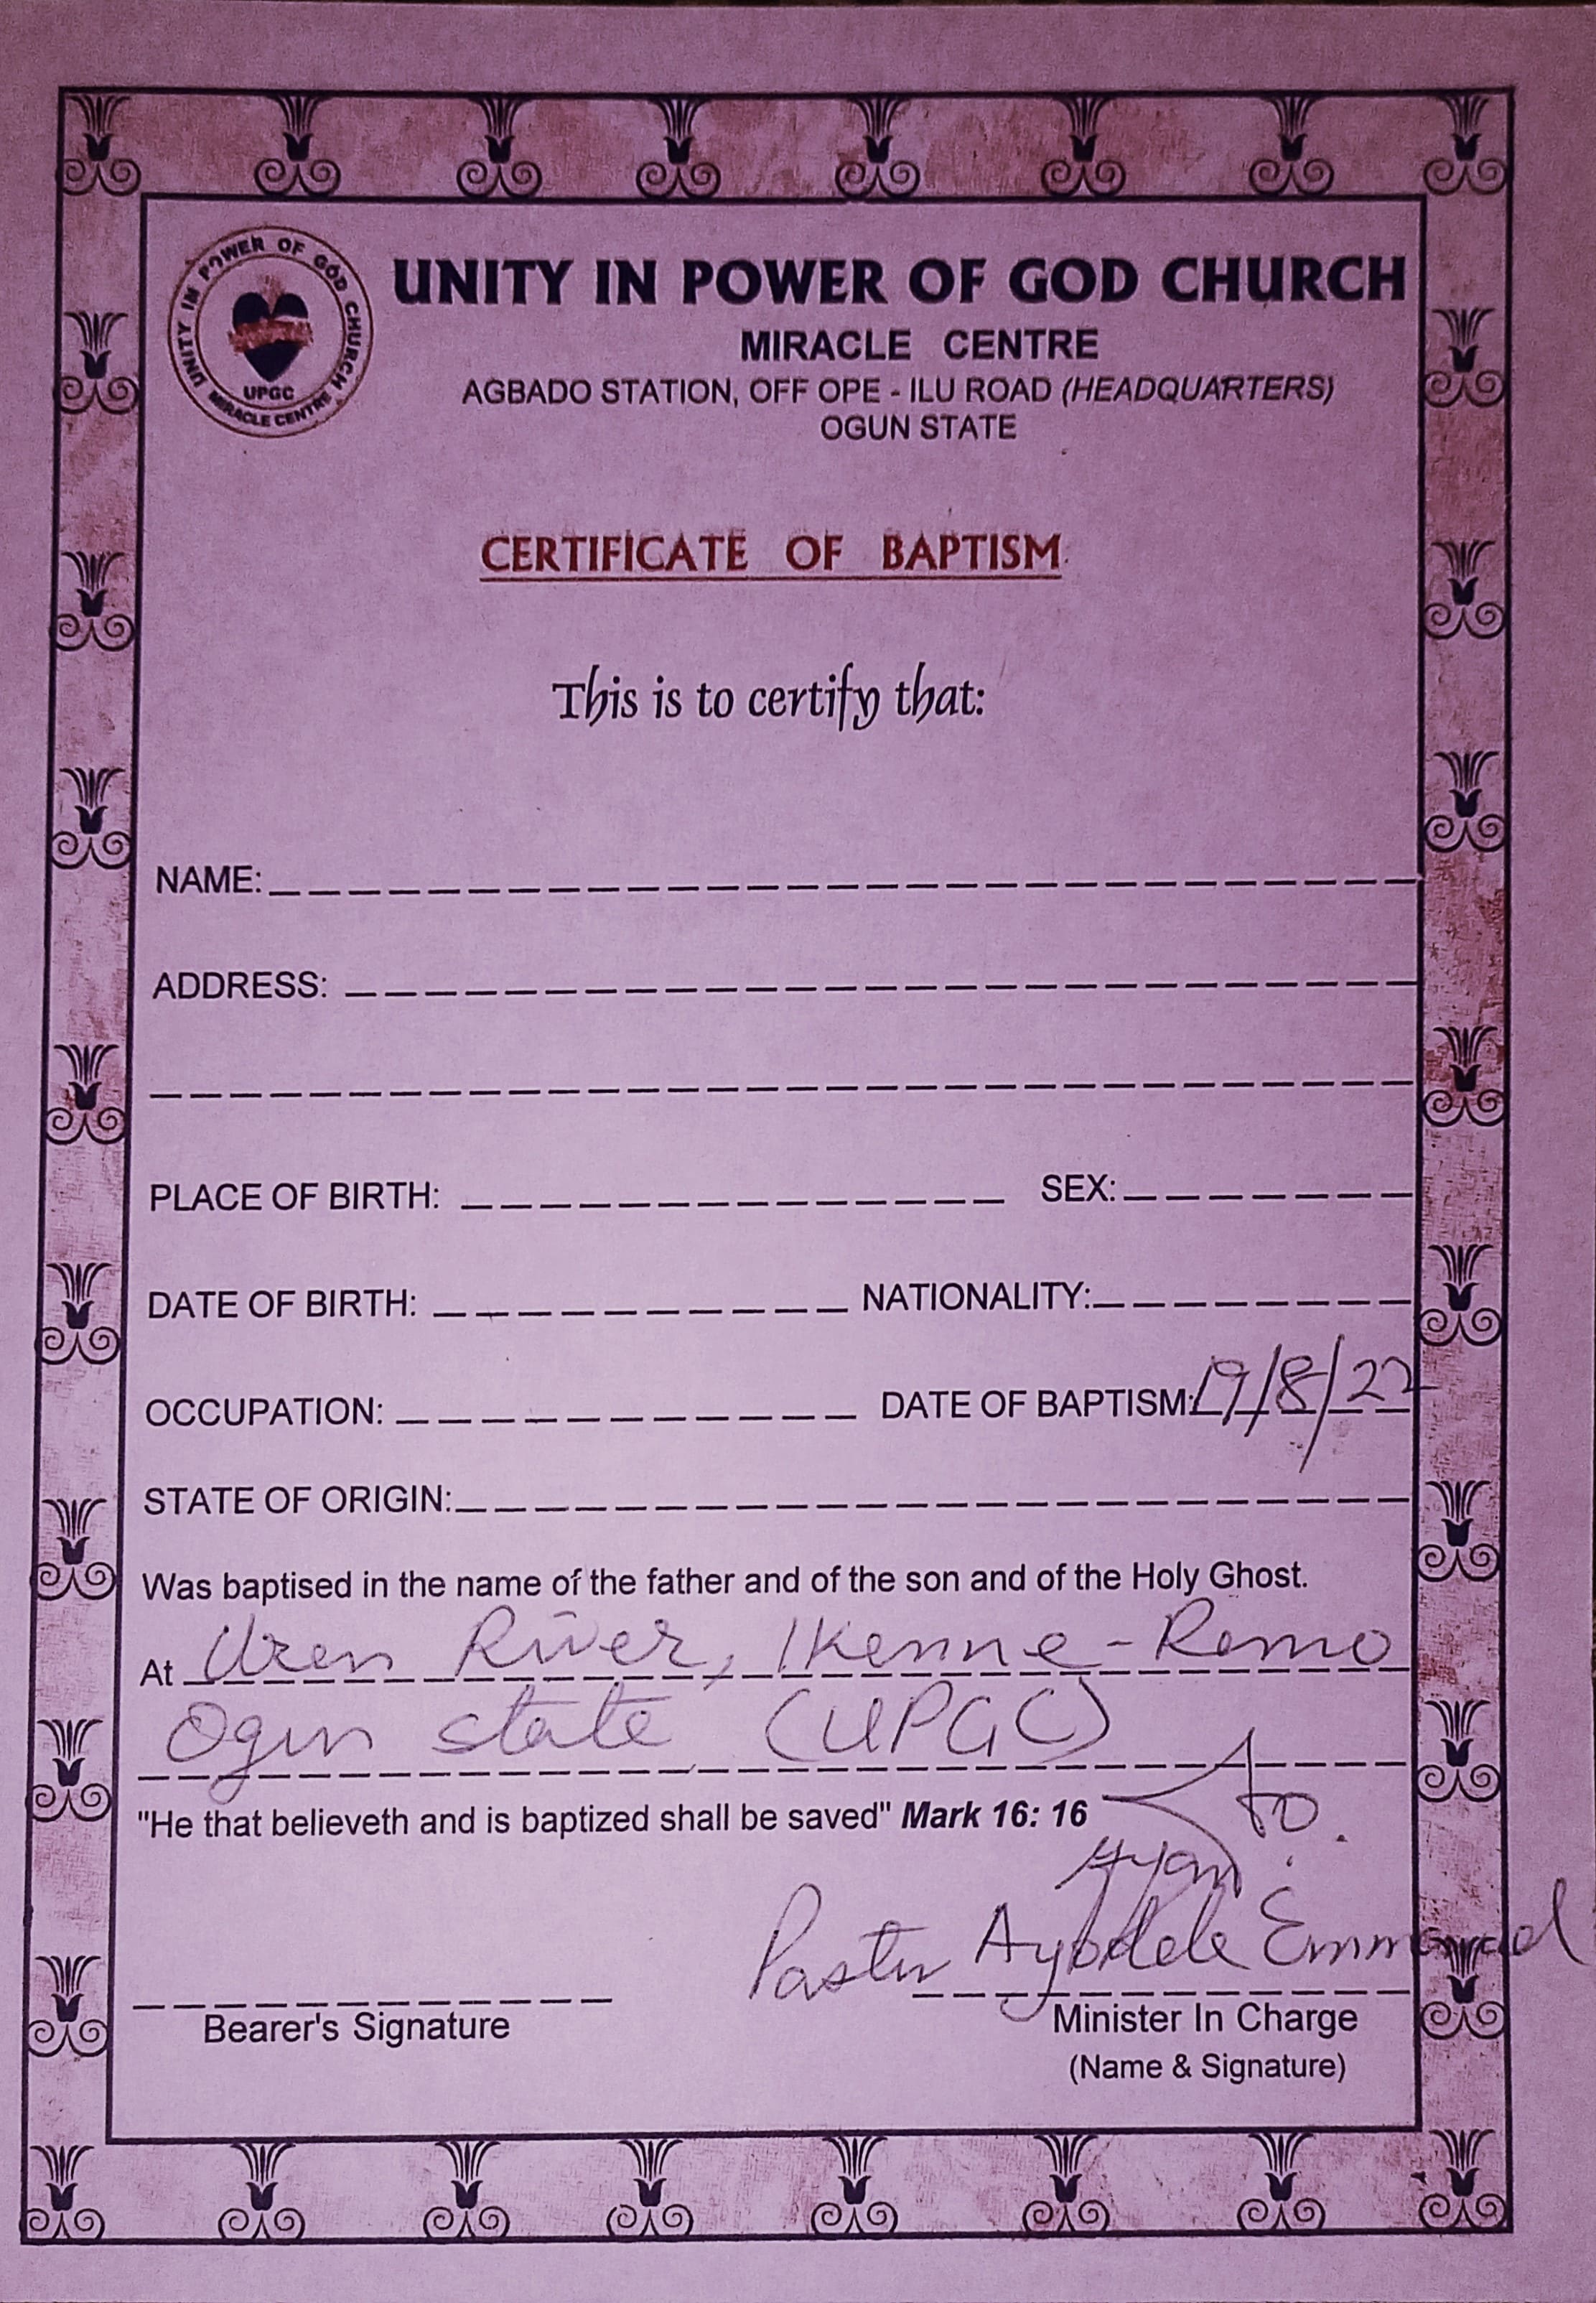 UNITY IN POWER OF GOD CHURCH
UPGC
MIRACLE CENTRE
UNITY IN POWER OF GOD CHURCH
MIRACLE CENTRE
AGBADO STATION, OFF OPE - ILU ROAD (HEADQUARTERS)
OGUN STATE
CERTIFICATE OF BAPTISM
This is to certify that:
NAME:
ADDRESS:
PLACE OF BIRTH: SEX:
DATE OF BIRTH: NATIONALITY:
OCCUPATION: DATE OF BAPTISM: 19/8/22
STATE OF ORIGIN:
Was baptised in the name of the father and of the son and of the Holy Ghost.
At Uren River, Ikenne-Remo
Ogun state (UPGC)
"He that believeth and is baptized shall be saved" Mark 16: 16
Pastor Ayodele Emmanuel
Bearer's Signature Minister In Charge
(Name & Signature)